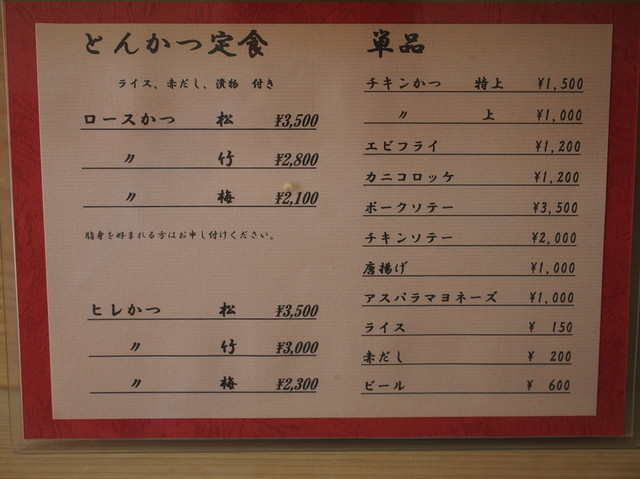 とんかつ定食
ライス、赤だし、漬物 付き
ロースかつ 松 ¥3,500
〃 竹 ¥2,800
〃 梅 ¥2,100
脂身を好まれる方はお申し付けください。
ヒレかつ 松 ¥3,500
〃 竹 ¥3,000
〃 梅 ¥2,300
単品
チキンかつ 特上 ¥1,500
〃 上 ¥1,000
エビフライ ¥1,200
カニコロッケ ¥1,200
ポークソテー ¥3,500
チキンソテー ¥2,000
唐揚げ ¥1,000
アスパラマヨネーズ ¥1,000
ライス ¥ 150
赤だし ¥ 200
ビール ¥ 600